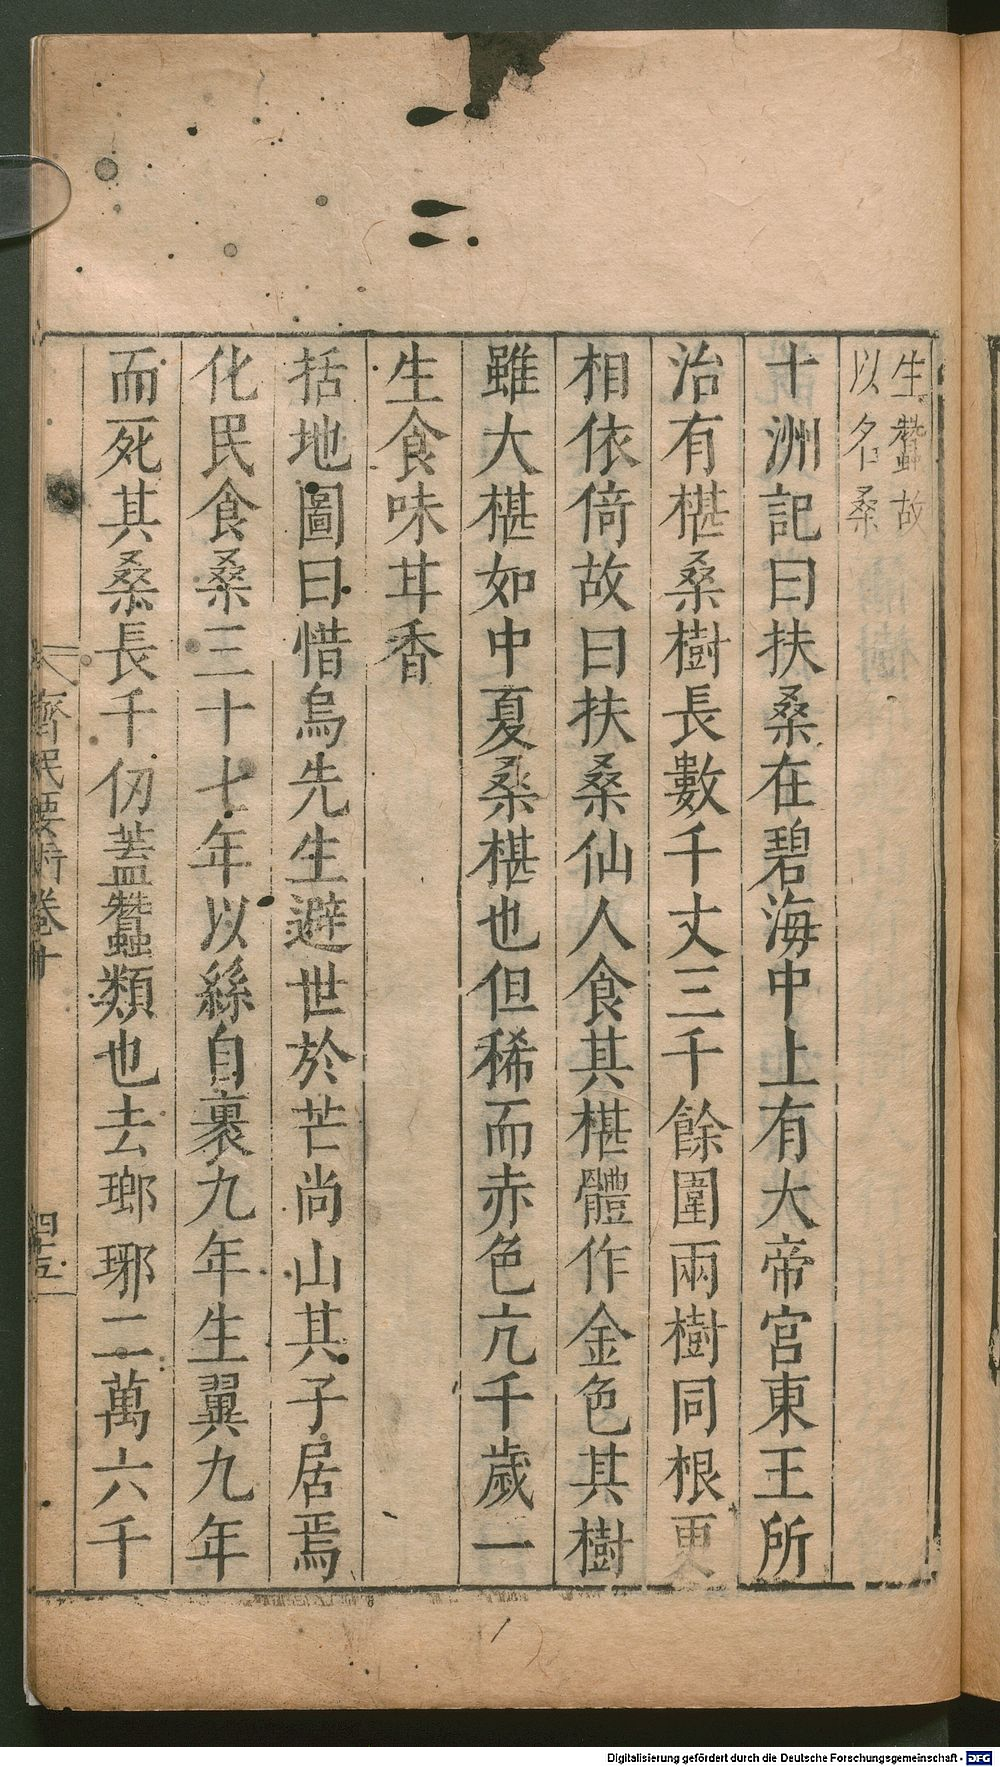 生蠶故
以名桑
十洲記曰扶桑在碧海中上有大帝宮東王所
治有椹桑樹長數千丈三千餘圍兩樹同根更
相依倚故曰扶桑仙人食其椹體作金色其樹
雖大椹如中夏桑椹也但稀而赤色九千歲一
生食味甘香
括地圖曰惜烏先生避世於芒尚山其子居焉
化民食桑三十七年以絲自裹九年生翼九年
而死其桑長千仞蓋蠶類也去瑯琊二萬六千
齊民要術卷十
四五
Digitalisierung gefördert durch die Deutsche Forschungsgemeinschaft - DFG